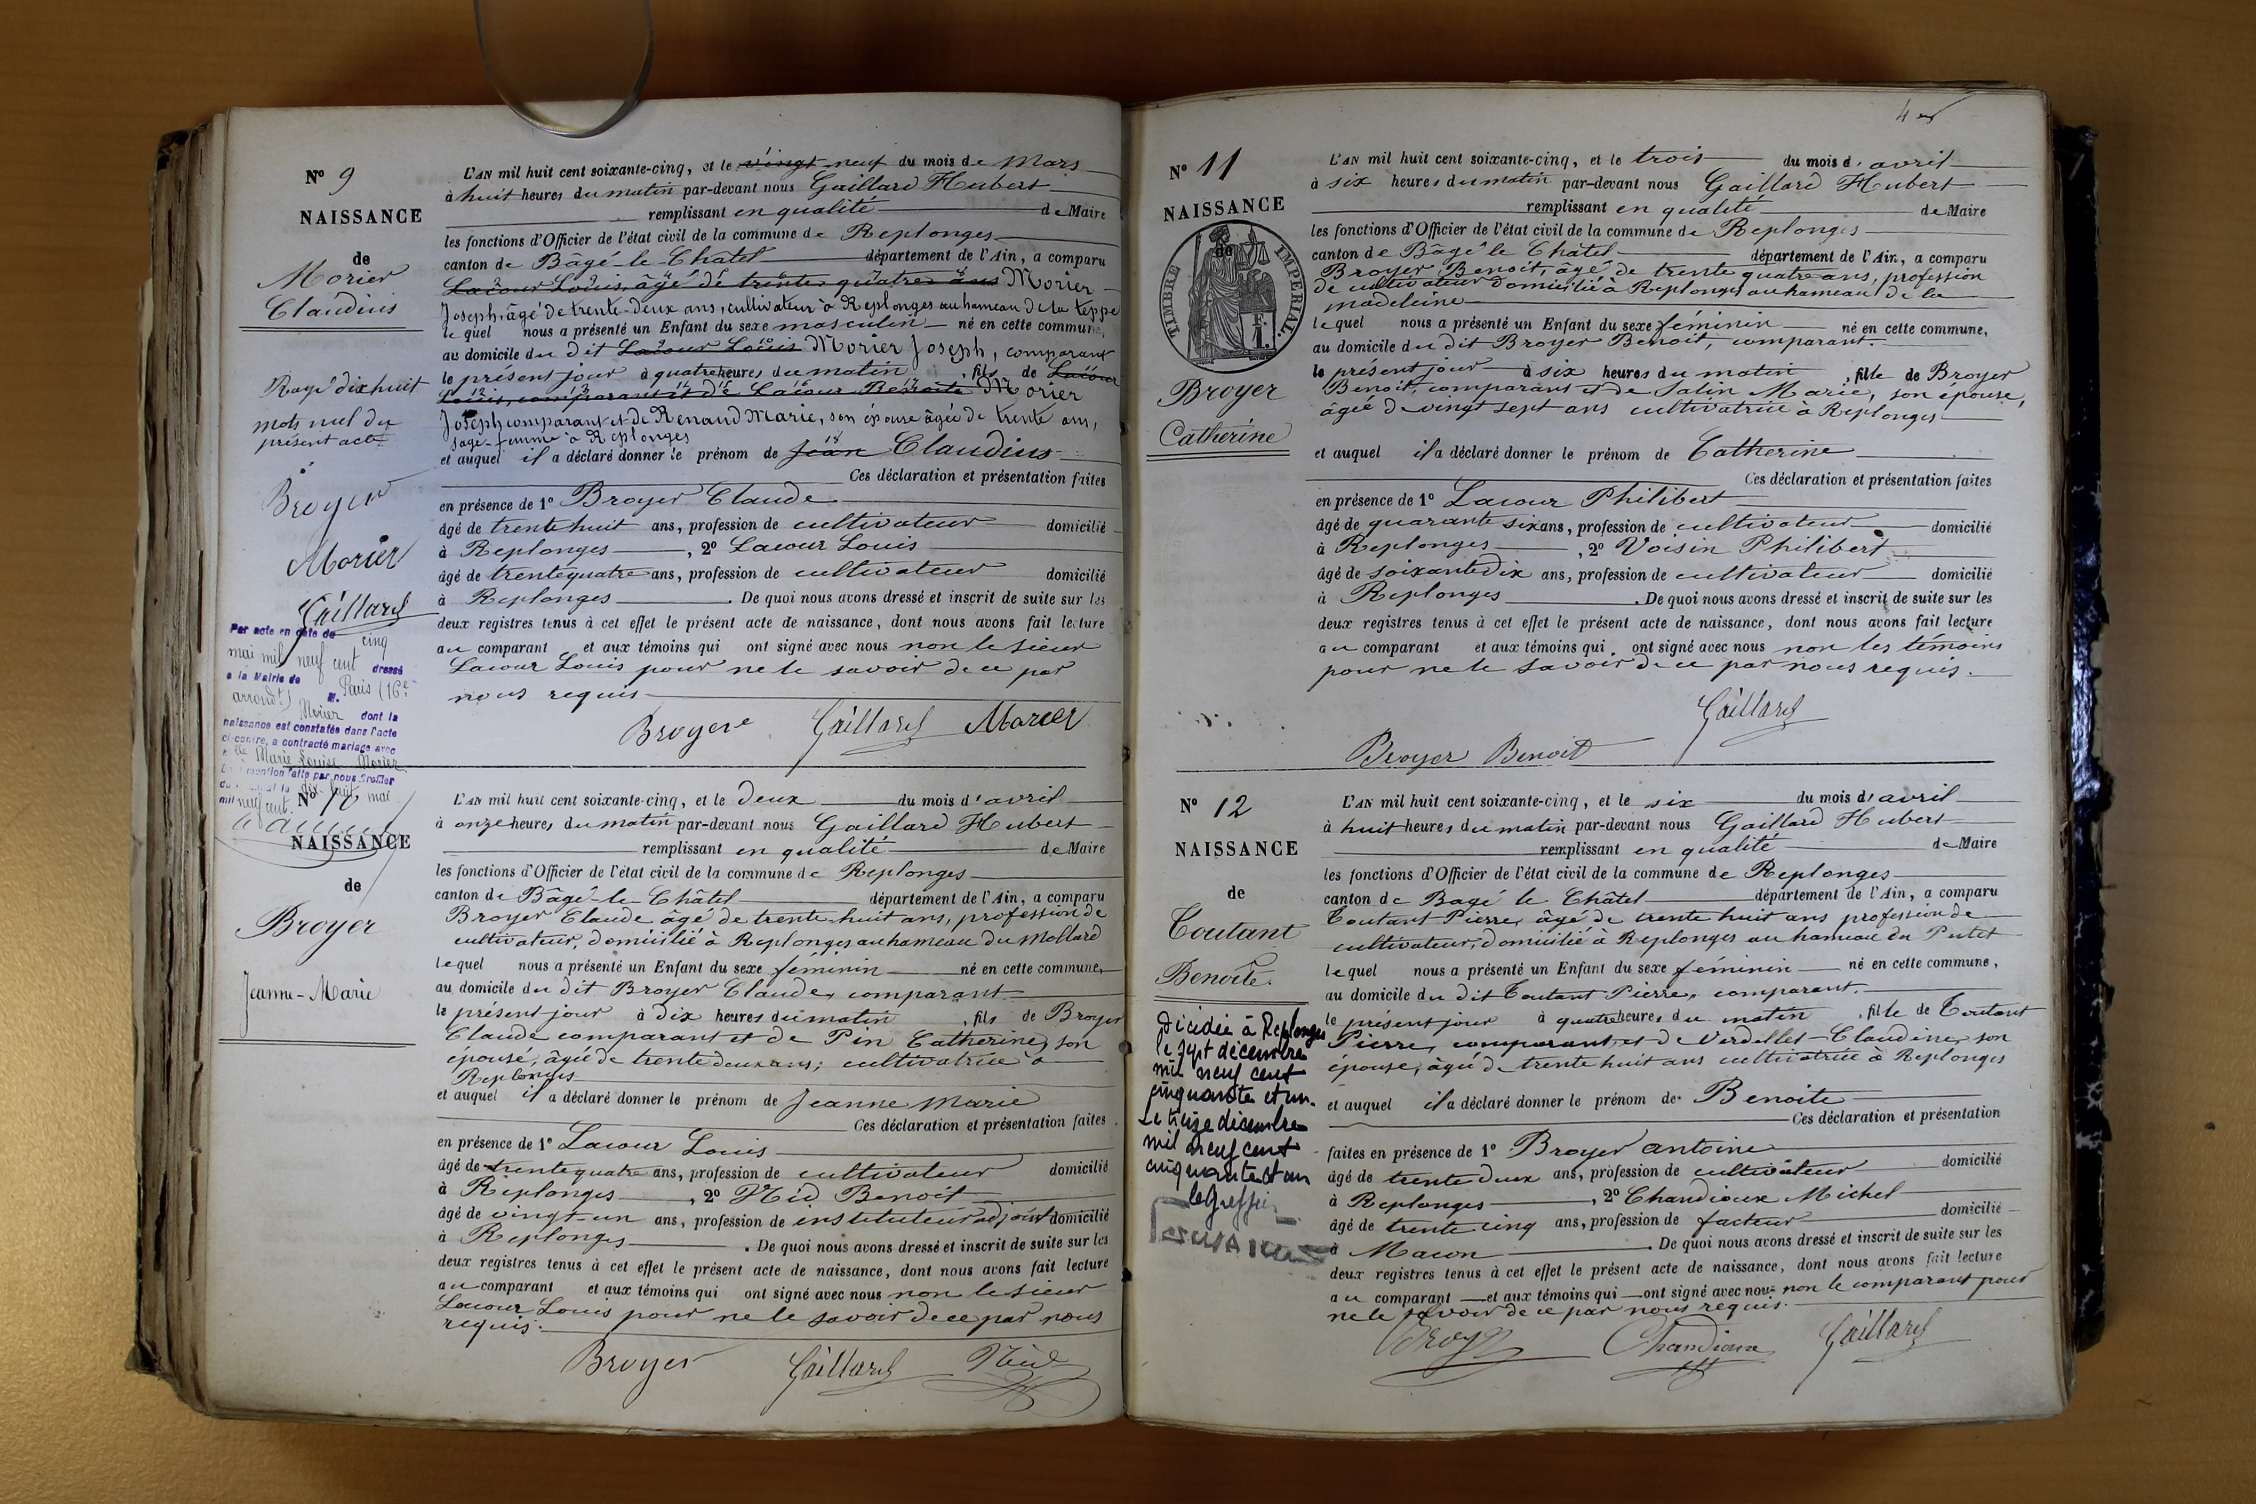 Nº 9
NAISSANCE
de
Morier
Claudius
Rayé dix huit
mots nul du
présent acte
Broyer
Morier
Gaillard
Par acte en date du cinq
mai mil neuf cent dressé
à la Mairie de Paris (16e
arrondt) M.
Morier dont la
naissance est constatée dans l'acte
ci-contre, a contracté mariage avec
Marie Louise Morier
mention faite par nous Greffier
dix huit mai
mil neuf cent.
L'AN mil huit cent soixante-cinq, et le vingt neuf du mois de Mars
à huit heures du matin par-devant nous Gaillard Hubert
remplissant en qualité de Maire
les fonctions d'Officier de l'état civil de la commune de Replonges
canton de Bâgé-le-Chatel département de l'Ain, a comparu
Lacour Louis, âgé de trente quatre ans Morier
Joseph, âgé de trente-deux ans, cultivateur à Replonges au hameau de la teppe
le quel nous a présenté un Enfant du sexe masculin né en cette commune,
au domicile du dit Lacour Louis Morier Joseph, comparant
le présent jour à quatre heures du matin, fils de Lacour
Louis, comparant et de Lacour Benoite Morier
Joseph comparant et de Renaud Marie, son épouse âgée de trente ans,
sage-femme à Replonges
et auquel il a déclaré donner le prénom de Jean Claudius
Ces déclaration et présentation faites
en présence de 1º Broyer Claude
âgé de trente huit ans, profession de cultivateur domicilié
à Replonges, 2º Lacour Louis
âgé de trente quatre ans, profession de cultivateur domicilié
à Replonges. De quoi nous avons dressé et inscrit de suite sur les
deux registres tenus à cet effet le présent acte de naissance, dont nous avons fait lecture
au comparant et aux témoins qui ont signé avec nous non le sieur
Lacour Louis pour ne le savoir de ce par
nous requis
Broyer Gaillard Morier
Nº 10
NAISSANCE
de
Broyer
Jeanne-Marie
L'AN mil huit cent soixante-cinq, et le deux du mois d'avril
à onze heures du matin par-devant nous Gaillard Hubert
remplissant en qualité de Maire
les fonctions d'Officier de l'état civil de la commune de Replonges
canton de Bâgé-le-Châtel département de l'Ain, a comparu
Broyer Claude âgé de trente-huit ans, profession de
cultivateur, domicilié à Replonges au hameau du Mollard
le quel nous a présenté un Enfant du sexe féminin né en cette commune,
au domicile du dit Broyer Claude, comparant
le présent jour à dix heures du matin, fils de Broyer
Claude comparant et de Pin Catherine, son
épouse, âgée de trente deux ans; cultivatrice à
Replonges
et auquel il a déclaré donner le prénom de Jeanne Marie
Ces déclaration et présentation faites
en présence de 1º Lacour Louis
âgé de trente quatre ans, profession de cultivateur domicilié
à Replonges, 2º Nid Benoit
âgé de vingt-un ans, profession de instituteur adjoint domicilié
à Replonges. De quoi nous avons dressé et inscrit de suite sur les
deux registres tenus à cet effet le présent acte de naissance, dont nous avons fait lecture
au comparant et aux témoins qui ont signé avec nous non le sieur
Lacour Louis pour ne le savoir de ce par nous
requis.
Broyer Gaillard Nid
4
Nº 11
NAISSANCE
de
TIMBRE IMPERIAL.
1 F.
Broyer
Catherine
L'AN mil huit cent soixante-cinq, et le trois du mois d'avril
à six heures du matin par-devant nous Gaillard Hubert
remplissant en qualité de Maire
les fonctions d'Officier de l'état civil de la commune de Replonges
canton de Bâgé le Châtel département de l'Ain, a comparu
Broyer Benoit, âgé de trente quatre ans, profession
de cultivateur domicilié à Replonges au hameau de la
madeleine
le quel nous a présenté un Enfant du sexe féminin né en cette commune,
au domicile du dit Broyer Benoit, comparant.
le présent jour à six heures du matin, fille de Broyer
Benoit, comparant et de Salin Marie, son épouse,
âgée de vingt sept ans cultivatrice à Replonges
et auquel il a déclaré donner le prénom de Catherine
Ces déclaration et présentation faites
en présence de 1º Lacour Philibert
âgé de quarante six ans, profession de cultivateur domicilié
à Replonges, 2º Voisin Philibert
âgé de soixante dix ans, profession de cultivateur domicilié
à Replonges. De quoi nous avons dressé et inscrit de suite sur les
deux registres tenus à cet effet le présent acte de naissance, dont nous avons fait lecture
au comparant et aux témoins qui ont signé avec nous non les témoins
pour ne le savoir de ce par nous requis.
Gaillard
Broyer Benoit
Nº 12
NAISSANCE
de
Toutant
Benoite.
Décédée à Replonges
le sept décembre
mil neuf cent
cinquante et un.
Le treize décembre
mil neuf cent
cinquante et un
le Greffier
L'AN mil huit cent soixante-cinq, et le six du mois d'avril
à huit heures du matin par-devant nous Gaillard Hubert
remplissant en qualité de Maire
les fonctions d'Officier de l'état civil de la commune de Replonges
canton de Bagé le Châtel département de l'Ain, a comparu
Toutant Pierre, âgé de trente huit ans profession de
cultivateur, domicilié à Replonges au hameau du Putet
le quel nous a présenté un Enfant du sexe féminin né en cette commune,
au domicile du dit Toutant Pierre, comparant.
le présent jour à quatre heures du matin, fille de Toutant
Pierre, comparant et de Verdellet Claudine, son
épouse, âgée de trente huit ans cultivatrice à Replonges
et auquel il a déclaré donner le prénom de Benoite
Ces déclaration et présentation
faites en présence de 1º Broyer Antoine
âgé de trente deux ans, profession de cultivateur domicilié
à Replonges, 2º Chandioux Michel
âgé de trente cinq ans, profession de facteur domicilié
à Macon. De quoi nous avons dressé et inscrit de suite sur les
deux registres tenus à cet effet le présent acte de naissance, dont nous avons fait lecture
au comparant et aux témoins qui ont signé avec nous non le comparant pour
ne le savoir de ce par nous requis.
Broyer Chandioux Gaillard